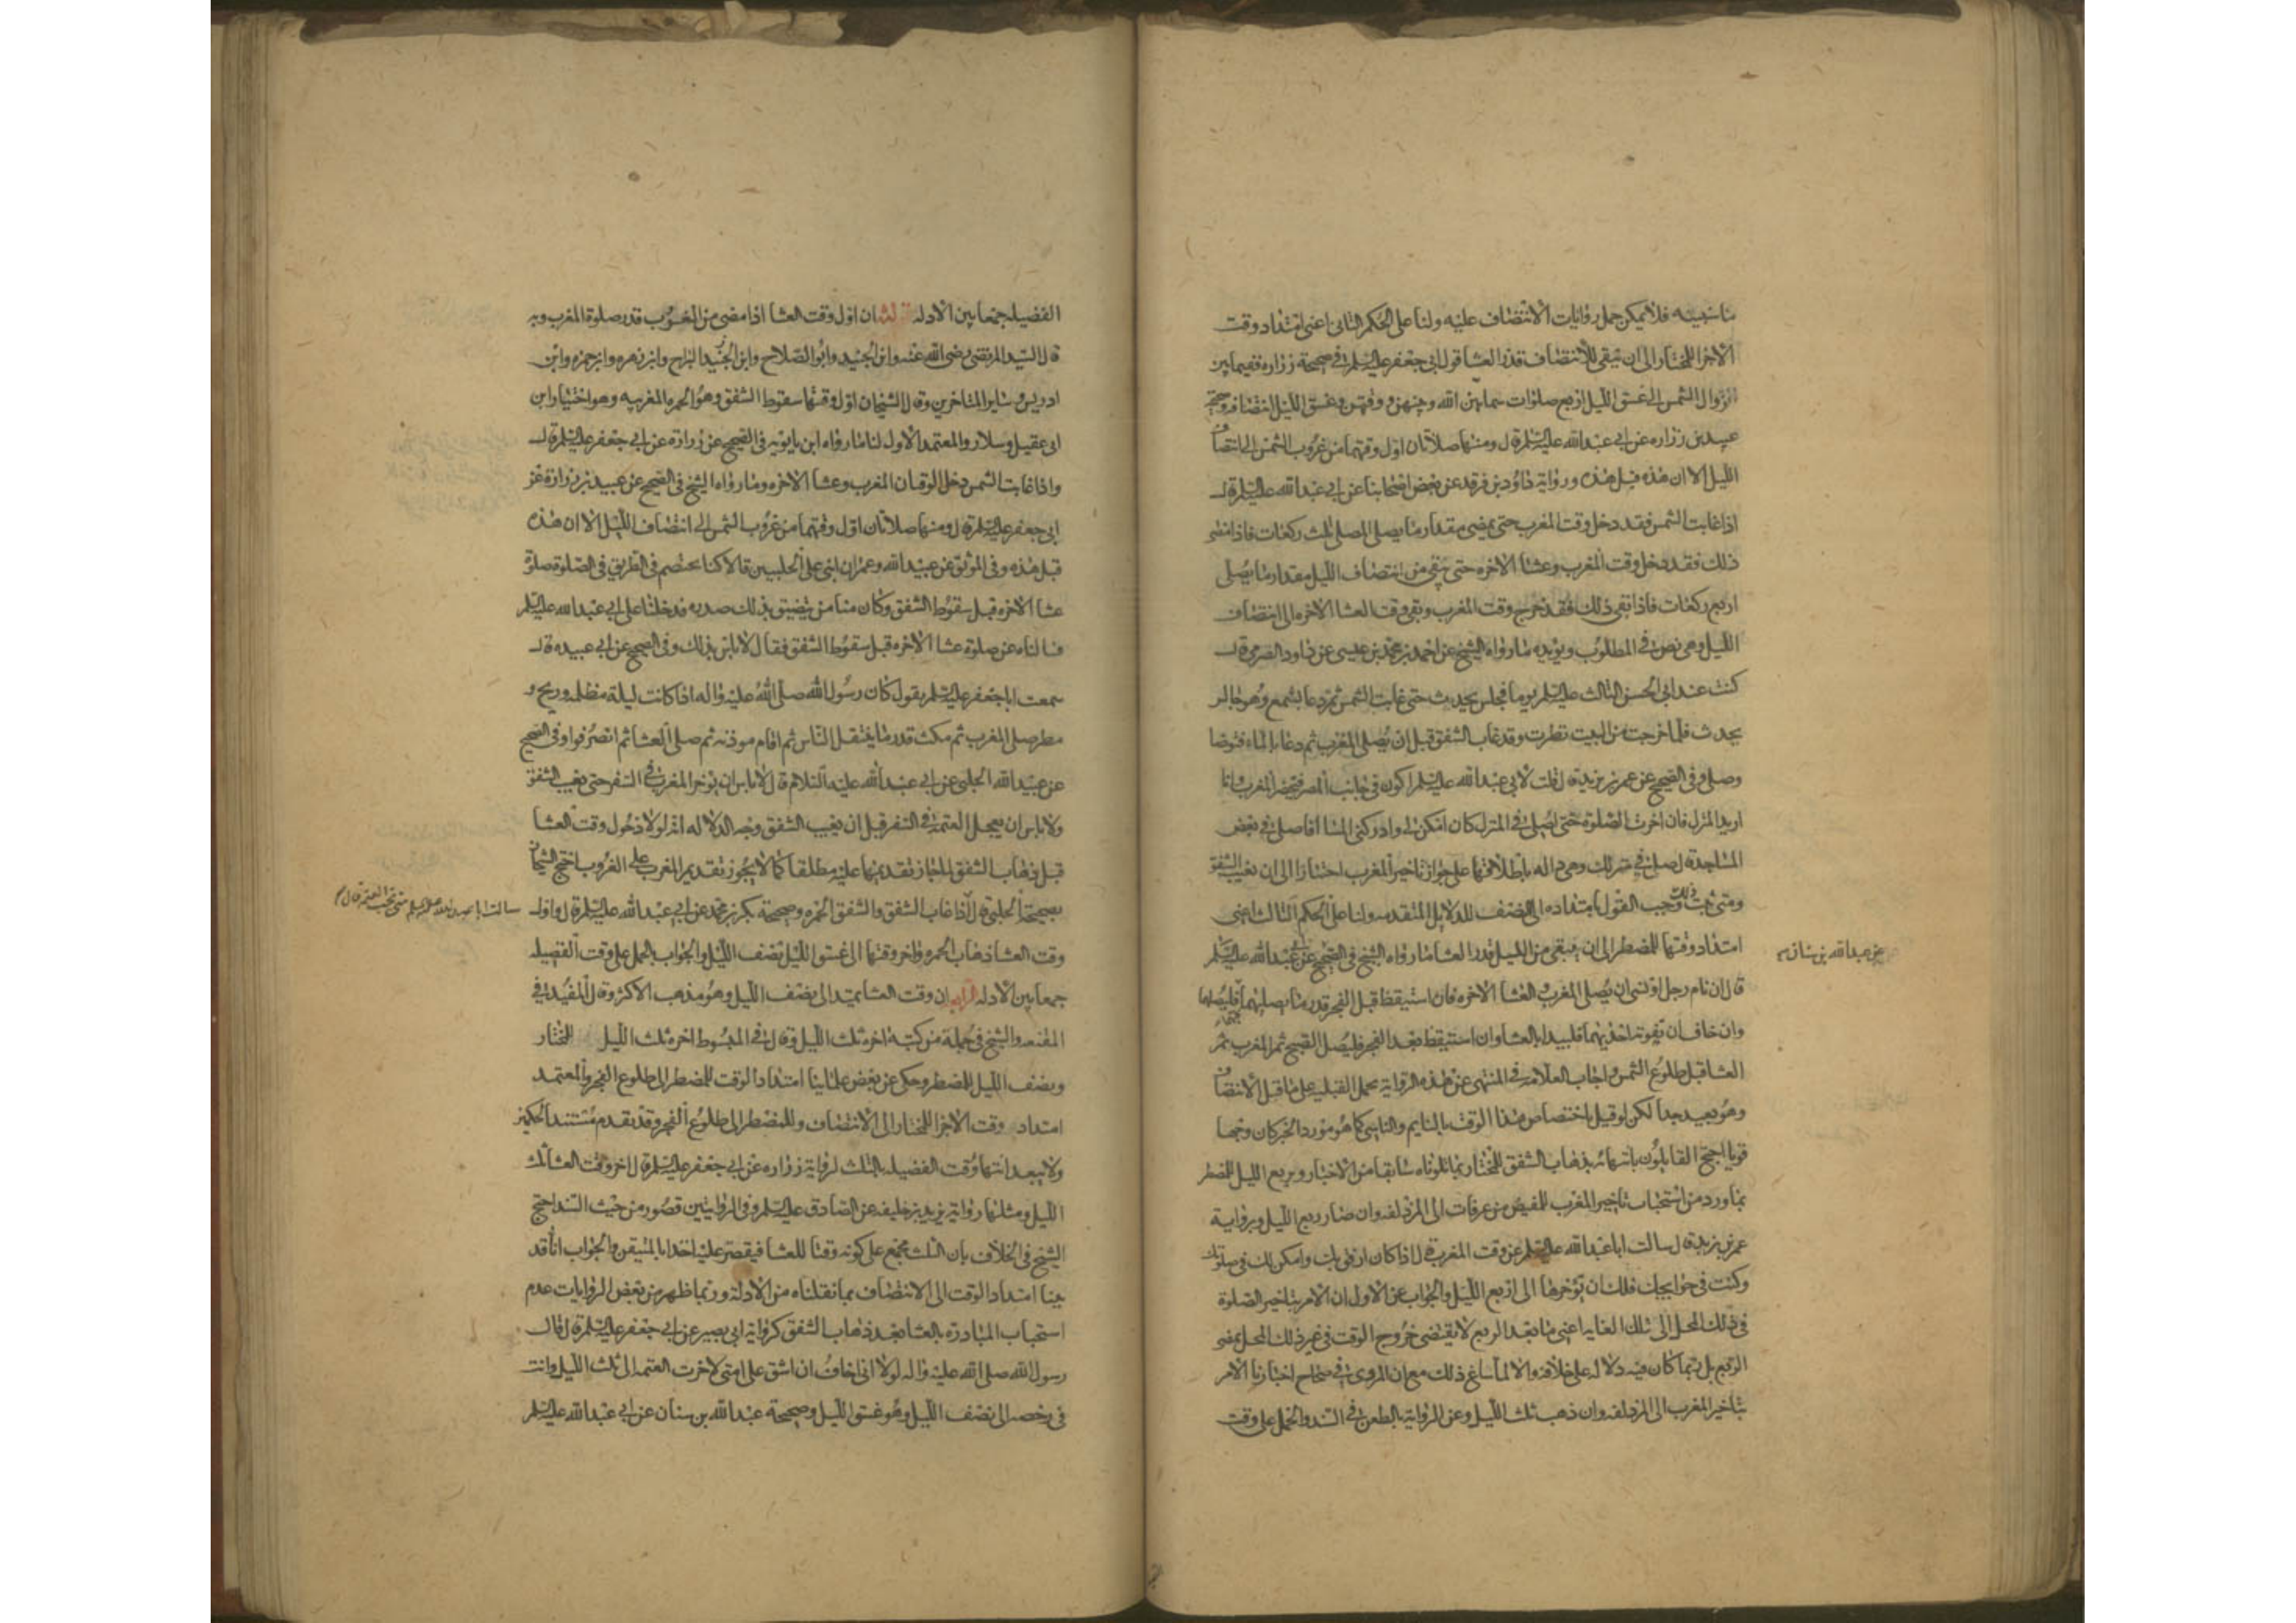 ما سنبينه فلا يمكن حمل روايات الانتصاف عليه ولنا على الحكم الثاني اعني امتداد وقت
الاجزا للمختار الى ان يبقى للانتصاف قدر العشا قول ابي جعفر عليه السلم في صحيحة زراره ففيما بين
الزوال الشمس الى غسق الليل اربع صلوات سماهن الله وبينهن ووقتهن وغسق الليل انتصافه وصحيحة
عبيد بن زراره عن ابي عبد الله عليه السلم قال ومنها صلاتان اول وقتهما من غروب الشمس الى انتصاف
الليل الا ان هذه قبل هذه ورواية داود بن فرقد عن بعض اصحابنا عن ابي عبد الله عليه السلم قال
اذا غابت الشمس فقد دخل وقت المغرب حتى يمضي مقدار ما يصلي المصلي ثلث ركعات فاذا مضى
ذلك فقد دخل وقت المغرب وعشا الاخره حتى يبقى من انتصاف الليل مقدار ما يصلى
اربع ركعات فاذا بقي ذلك فقد خرج وقت المغرب وبقي وقت العشا الاخره الى انتصاف
الليل وهى نص في المطلوب ويؤيده ما رواه الشيخ عن احمد بن محمد بن عيسى عن داود الصرمي قال
كنت عند ابي الحسن الثالث عليه السلم يوما فجلس يحدث حتى غابت الشمس ثم دعا بشمع وهو جالس
يحدث فلما خرجت من البيت نظرت وقد غاب الشفق قبل ان يصلى المغرب ثم دعا بالماء فتوضا
وصلى وفى الصحيح عن عمر بن يزيد قال قلت لابي عبد الله عليه السلم اكون في جانب المصر فتحضر المغرب وانا
اريد المنزل فان اخرت الصلوة حتى اصلي في المنزل كان امكن لي وادركني المسا افاصلى في بعض
المساجد قال صل في منزلك وهي داله باطلاقها على جواز تاخير المغرب اختيارا الى ان تغيب الشفق
ومتى ثبت ذلك وجب القول بامتداده الى النصف للدلايل المتقدمه ولنا على الحكم الثالث اعني
امتداد وقتها للمضطر الى ان يبقى من الليل قدر العشا ما رواه الشيخ في الصحيح عن عبد الله عليه السلم
عن عبد الله بن سنان
قال ان نام رجل او نسي ان يصلى المغرب والعشا الاخره فان استيقظ قبل الفجر قدر ما يصليهما فليصلهما
وان خاف ان تفوته احديهما فليبدا بالعشا وان استيقظ بعد الفجر فليصل الصبح ثم المغرب ثم
العشا قبل طلوع الشمس واجاب العلامه في المنتهى عن هذه الرواية بحمل القبليه على ما قبل الانتصاف
وهو بعيد جدا لكن لو قيل باختصاص هذا الوقت بالنايم والناسي كما هو مورد الخبر كان وجها
قويا احتج القايلون بانتهائه بذهاب الشفق للمختار بما تلوناه سابقا من الاخبار وبربع الليل للمضطر
بما ورد من استحباب تاخير المغرب للمفيض من عرفات الى المزدلفه وان صار ربع الليل وبرواية
عمر بن يزيد قال سالت ابا عبد الله عليه السلم عن وقت المغرب قال اذا كان ارفق بك وامكن لك في صلوتك
وكنت في حوايجك فلك ان تؤخرها الى ربع الليل والجواب عن الاول ان الامر بتاخير الصلوة
في ذلك المحل الى تلك الغاية اعني ما بعد الربع لا يقتضي خروج الوقت في غير ذلك المحل بمضي
الربع بل ربما كان فيه دلالة على خلافه والا لما ساغ ذلك مع ان المروي في صحاح اخبارنا الامر
بتاخير المغرب الى المزدلفه وان ذهب ثلث الليل وعن الرواية بالطعن في السند والحمل على وقت
الفضيله جمعا بين الادله الثالث ان اول وقت العشا اذا مضى من الغروب قدر صلوة المغرب وبه
قال السيد المرتضى رضى الله عنه وابن الجنيد وابو الصلاح وابن البراج وابن زهره وابن حمزه وابن
ادريس وساير المتاخرين وقال الشيخان اول وقتها سقوط الشفق وهو الحمره المغربيه وهو اختيار ابن
ابي عقيل وسلار والمعتمد الاول لنا ما رواه ابن بابويه في الصحيح عن زرارة عن ابي جعفر عليه السلم قال
واذا غابت الشمس دخل الوقتان المغرب وعشا الاخره وما رواه الشيخ في الصحيح عن عبيد بن زرارة عن
ابي جعفر عليه السلم قال ومنها صلاتان اول وقتهما من غروب الشمس الى انتصاف الليل الا ان هذه
قبل هذه وفي الموثق عن عبيد الله وعمران ابني علي الحلبيين قالا كنا نختصم في الطريق في الصلوة صلوة
عشا الاخره قبل سقوط الشفق وكان منا من يضيق بذلك صدره فدخلنا على ابي عبد الله عليه السلم
فسالناه عن صلوة عشا الاخره قبل سقوط الشفق فقال لا باس بذلك وفي الصحيح عن ابي عبيده قال
سمعت ابا جعفر عليه السلم يقول كان رسول الله صلى الله عليه واله اذا كانت ليلة مظلمه وريح و
مطر صلى المغرب ثم مكث قدر ما يتنفل الناس ثم اقام موذنه ثم صلى العشا ثم انصرفوا وفي الصحيح
عن عبيد الله الحلبي عن ابي عبد الله عليه السلام قال لا باس ان يؤخر المغرب في السفر حتى يغيب الشفق
ولا باس ان يعجل العتمة في السفر قبل ان يغيب الشفق وجه الدلاله انه لولا دخول وقت العشا
قبل ذهاب الشفق لما جاز تقديمها عليه مطلقا كما لا يجوز تقديم المغرب على الغروب احتج الشيخان
بصحيحة الحلبي قال اذا غاب الشفق والشفق الحمره وصحيحة بكر بن محمد عن ابي عبد الله عليه السلم قال واول
سالت ابا عبد الله عليه السلم متى تجب العتمة قال
وقت العشا ذهاب الحمره واخر وقتها الى غسق الليل نصف الليل والجواب بالحمل على وقت الفضيله
جمعا بين الادله الرابع ان وقت العشا يمتد الى نصف الليل وهو مذهب الاكثر وقال المفيد في
المقنعه والشيخ في جملة من كتبه اخره ثلث الليل وقال في المبسوط اخره ثلث الليل للمختار
ونصف الليل للمضطر وحكى عن بعض علمائنا امتداد الوقت للمضطر الى طلوع الفجر والمعتمد
امتداد وقت الاجزا للمختار الى الانتصاف وللمضطر الى طلوع الفجر وقد تقدم مستند الحكمين
ولا يبعد انتهاء وقت الفضيله بالثلث لرواية زراره عن ابي جعفر عليه السلم قال اخر وقت العشا ثلث
الليل ومثلها رواية يزيد بن خليفه عن الصادق عليه السلم وفي الروايتين قصور من حيث السند احتج
الشيخ في الخلاف بان الثلث مجمع على كونه وقتا للعشا فيقتصر عليه اخذا بالمتيقن والجواب انا قد
بينا امتداد الوقت الى الانتصاف بما نقلناه من الادلة وربما ظهر من بعض الروايات عدم
استحباب المبادرة بالعشا بعد ذهاب الشفق كرواية ابي بصير عن ابي جعفر عليه السلم قال قال
رسول الله صلى الله عليه واله لولا اني اخاف ان اشق على امتي لاخرت العتمه الى ثلث الليل وانت
في رخصه الى نصف الليل وهو غسق الليل وصحيحة عبد الله بن سنان عن ابي عبد الله عليه السلم